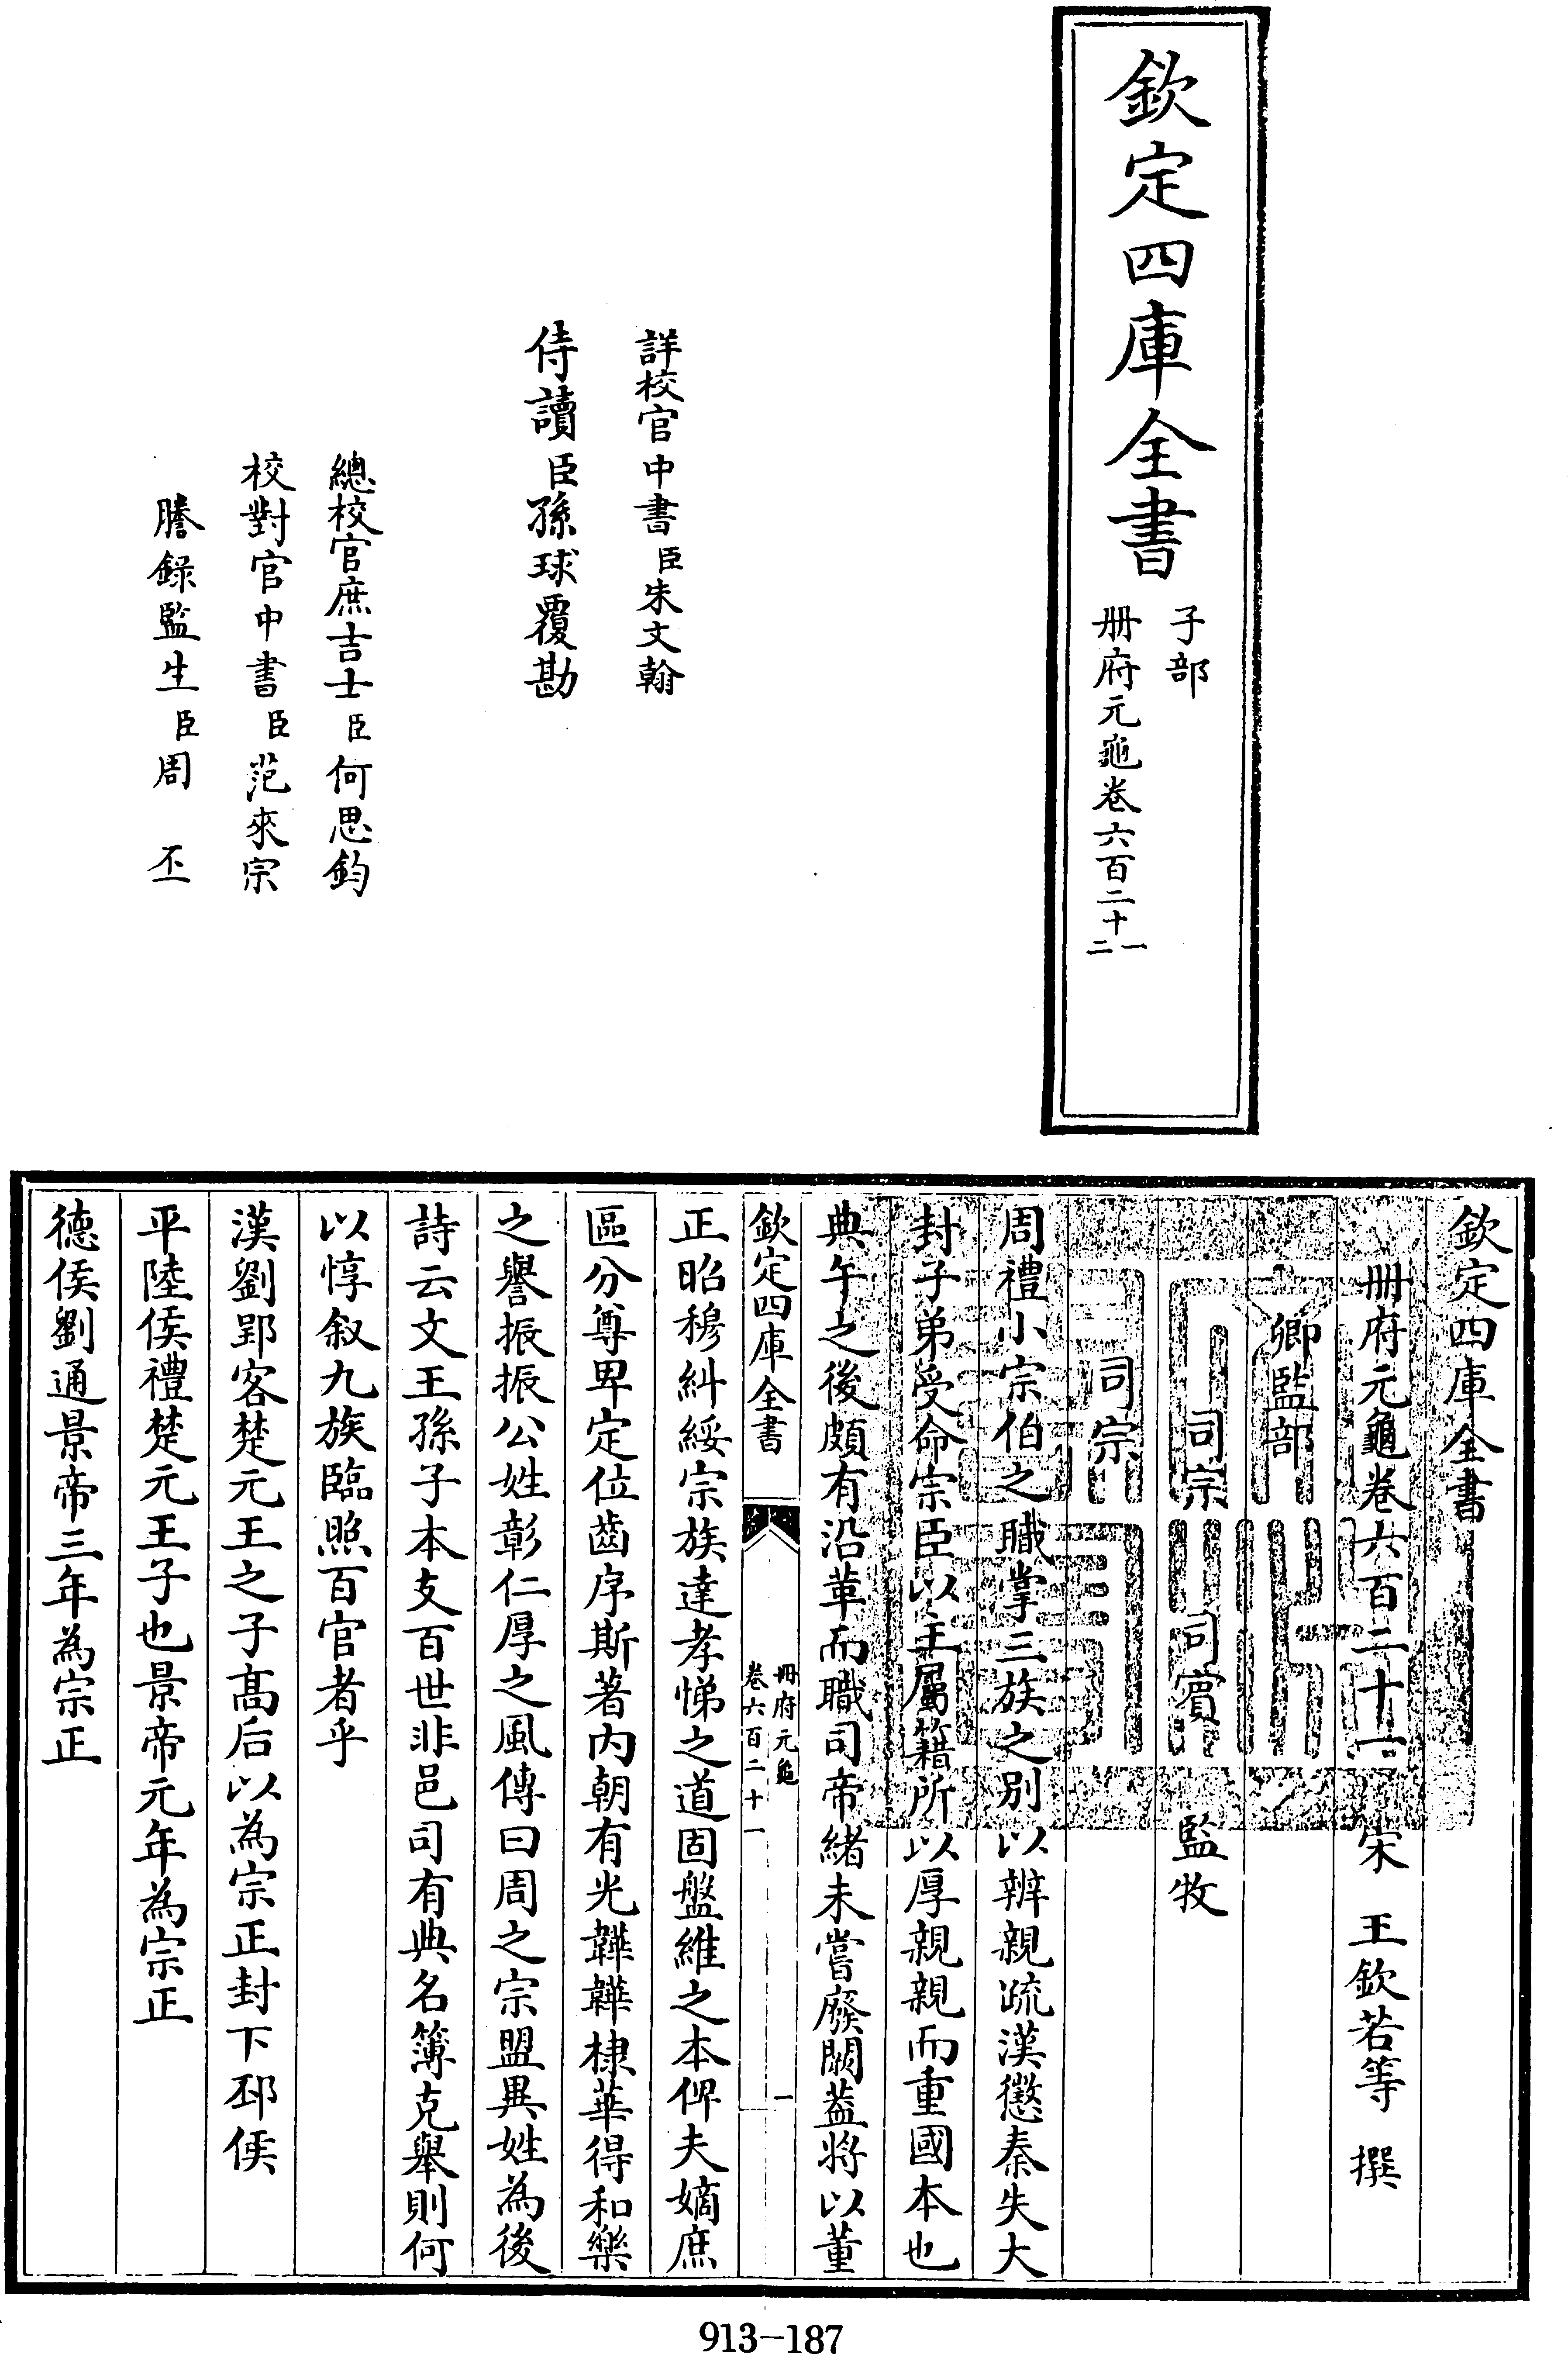 欽定四庫全書
子部
册府元龜卷六百二十一
二
詳校官中書臣朱文翰
侍讀臣孫球覆勘
總校官庶吉士臣何思鈞
校對官中書臣范來宗
謄錄監生臣周丕
欽定四庫全書
册府元龜卷六百二十一 宋 王欽若等 撰
卿監部
司宗 司賓 監牧
司宗
周禮小宗伯之職掌三族之別以辨親疏漢懲秦失大
封子弟受命宗臣以主屬籍所以厚親親而重國本也
典午之後頗有沿革而職司帝緒未嘗廢闕葢將以董
欽定四庫全書
册府元龜
卷六百二十一
一
正昭穆糾綏宗族達孝悌之道固盤維之本俾夫嫡庶
區分尊卑定位齒序斯著內朝有光韡韡棣華得和樂
之譽振振公姓彰仁厚之風傳曰周之宗盟異姓為後
詩云文王孫子本支百世非邑司有典名簿克舉則何
以惇叙九族臨照百官者乎
漢劉郢客楚元王之子高后以為宗正封下邳侯
平陸侯禮楚元王子也景帝元年為宗正
德侯劉通景帝三年為宗正
913-187